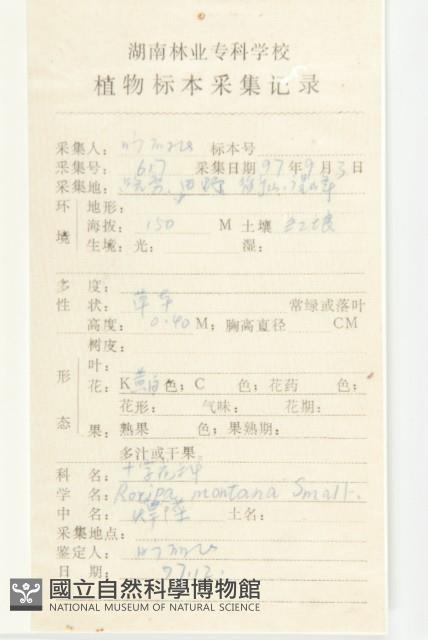 湖南林业专科学校
植物标本采集记录
采集人： 标本号
采集号： 657 采集日期97年9月3日
采集地：
环境 地形：
海拔： 150 M 土壤 红壤
生境：光： 湿：
多 度：
性 状： 草本 常绿或落叶
高度： 0.40 M；胸高直径 CM
形态 树皮：
叶：
花：K黄白色；C 色；花药 色；
花形： 气味： 花期：
果：熟果 色；果熟期：
多汁或干果
科 名： 十字花科
学 名： Roripa montana Small.
中 名： 土名：
采集地点：
鉴定人：
日 期：
國立自然科學博物館
NATIONAL MUSEUM OF NATURAL SCIENCE